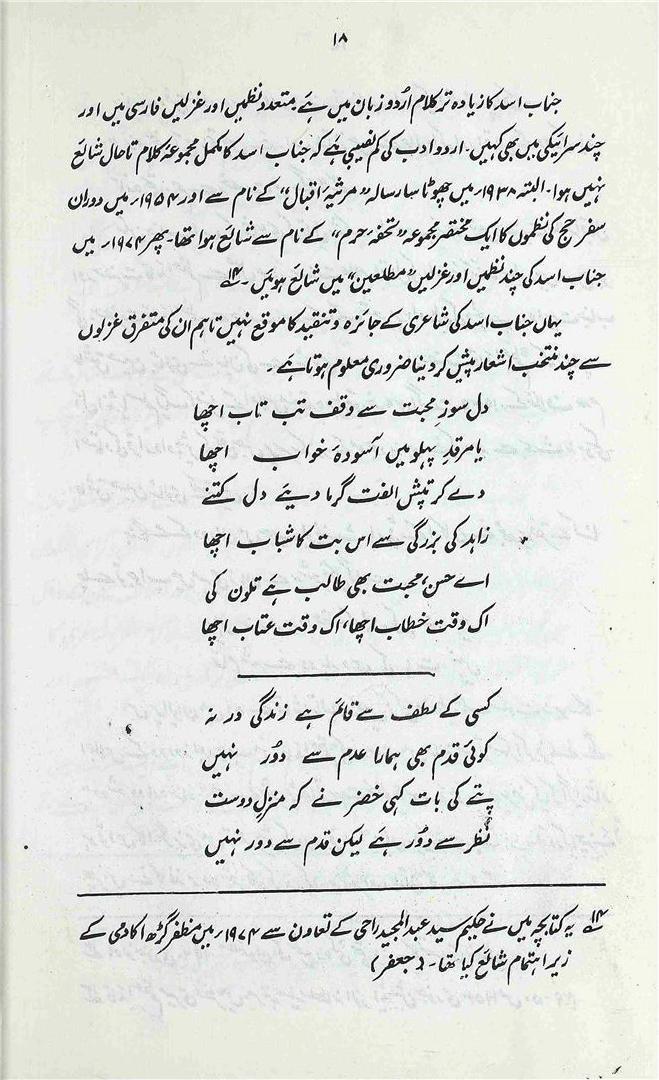 ۱۸
جناب اسد کا زیادہ تر کلام اُردو زبان میں ہے۔ متعدد نظمیں اور غزلیں فارسی میں اور
چند سرائیکی میں بھی کہیں۔ اردو ادب کی کم نصیبی ہے کہ جناب اسد کا مکمل مجموعہ کلام تاحال شائع
نہیں ہوا۔ البتہ ۱۹۳۸ء میں چھوٹا سا رسالہ "مرثیۂ اقبال" کے نام سے اور ۱۹۵۴ء میں دوران
سفر حج کی نظموں کا ایک مختصر مجموعہ "تحفۂ حرم" کے نام سے شائع ہوا تھا۔ پھر ۱۹۷۴ء میں
جناب اسد کی چند نظمیں اور غزلیں "مطلعین" میں شائع ہوئیں۔ ۱۴؎
یہاں جناب اسد کی شاعری کے جائزہ و تنقید کا موقع نہیں تاہم ان کی متفرق غزلوں
سے چند منتخب اشعار پیش کر دینا ضروری معلوم ہوتا ہے۔
دل سوزِ محبت سے وقف تب تاب اچھا
یا مرقدِ پہلو میں آسودۂ خواب اچھا
دے کر تپش الفت گرما دیئے دل کتنے
زاہد کی بزرگی سے اس بت کا شباب اچھا
اے حسن، محبت بھی طالب ہے تلون کی
اک وقت خطاب اچھا، اک وقت عتاب اچھا
کسی کے لطف سے قائم ہے زندگی ورنہ
کوئی قدم بھی ہمارا عدم سے دُور نہیں
پتے کی بات کہی خضر نے کہ منزلِ دوست
نظر سے دُور ہے لیکن قدم سے دور نہیں
۱۴؎ یہ کتابچہ میں نے حکیم سید عبدالمجید راحی کے تعاون سے ۱۹۷۴ء میں مظفر گڑھ اکادمی کے
زیر اہتمام شائع کیا تھا۔ (جعفر)